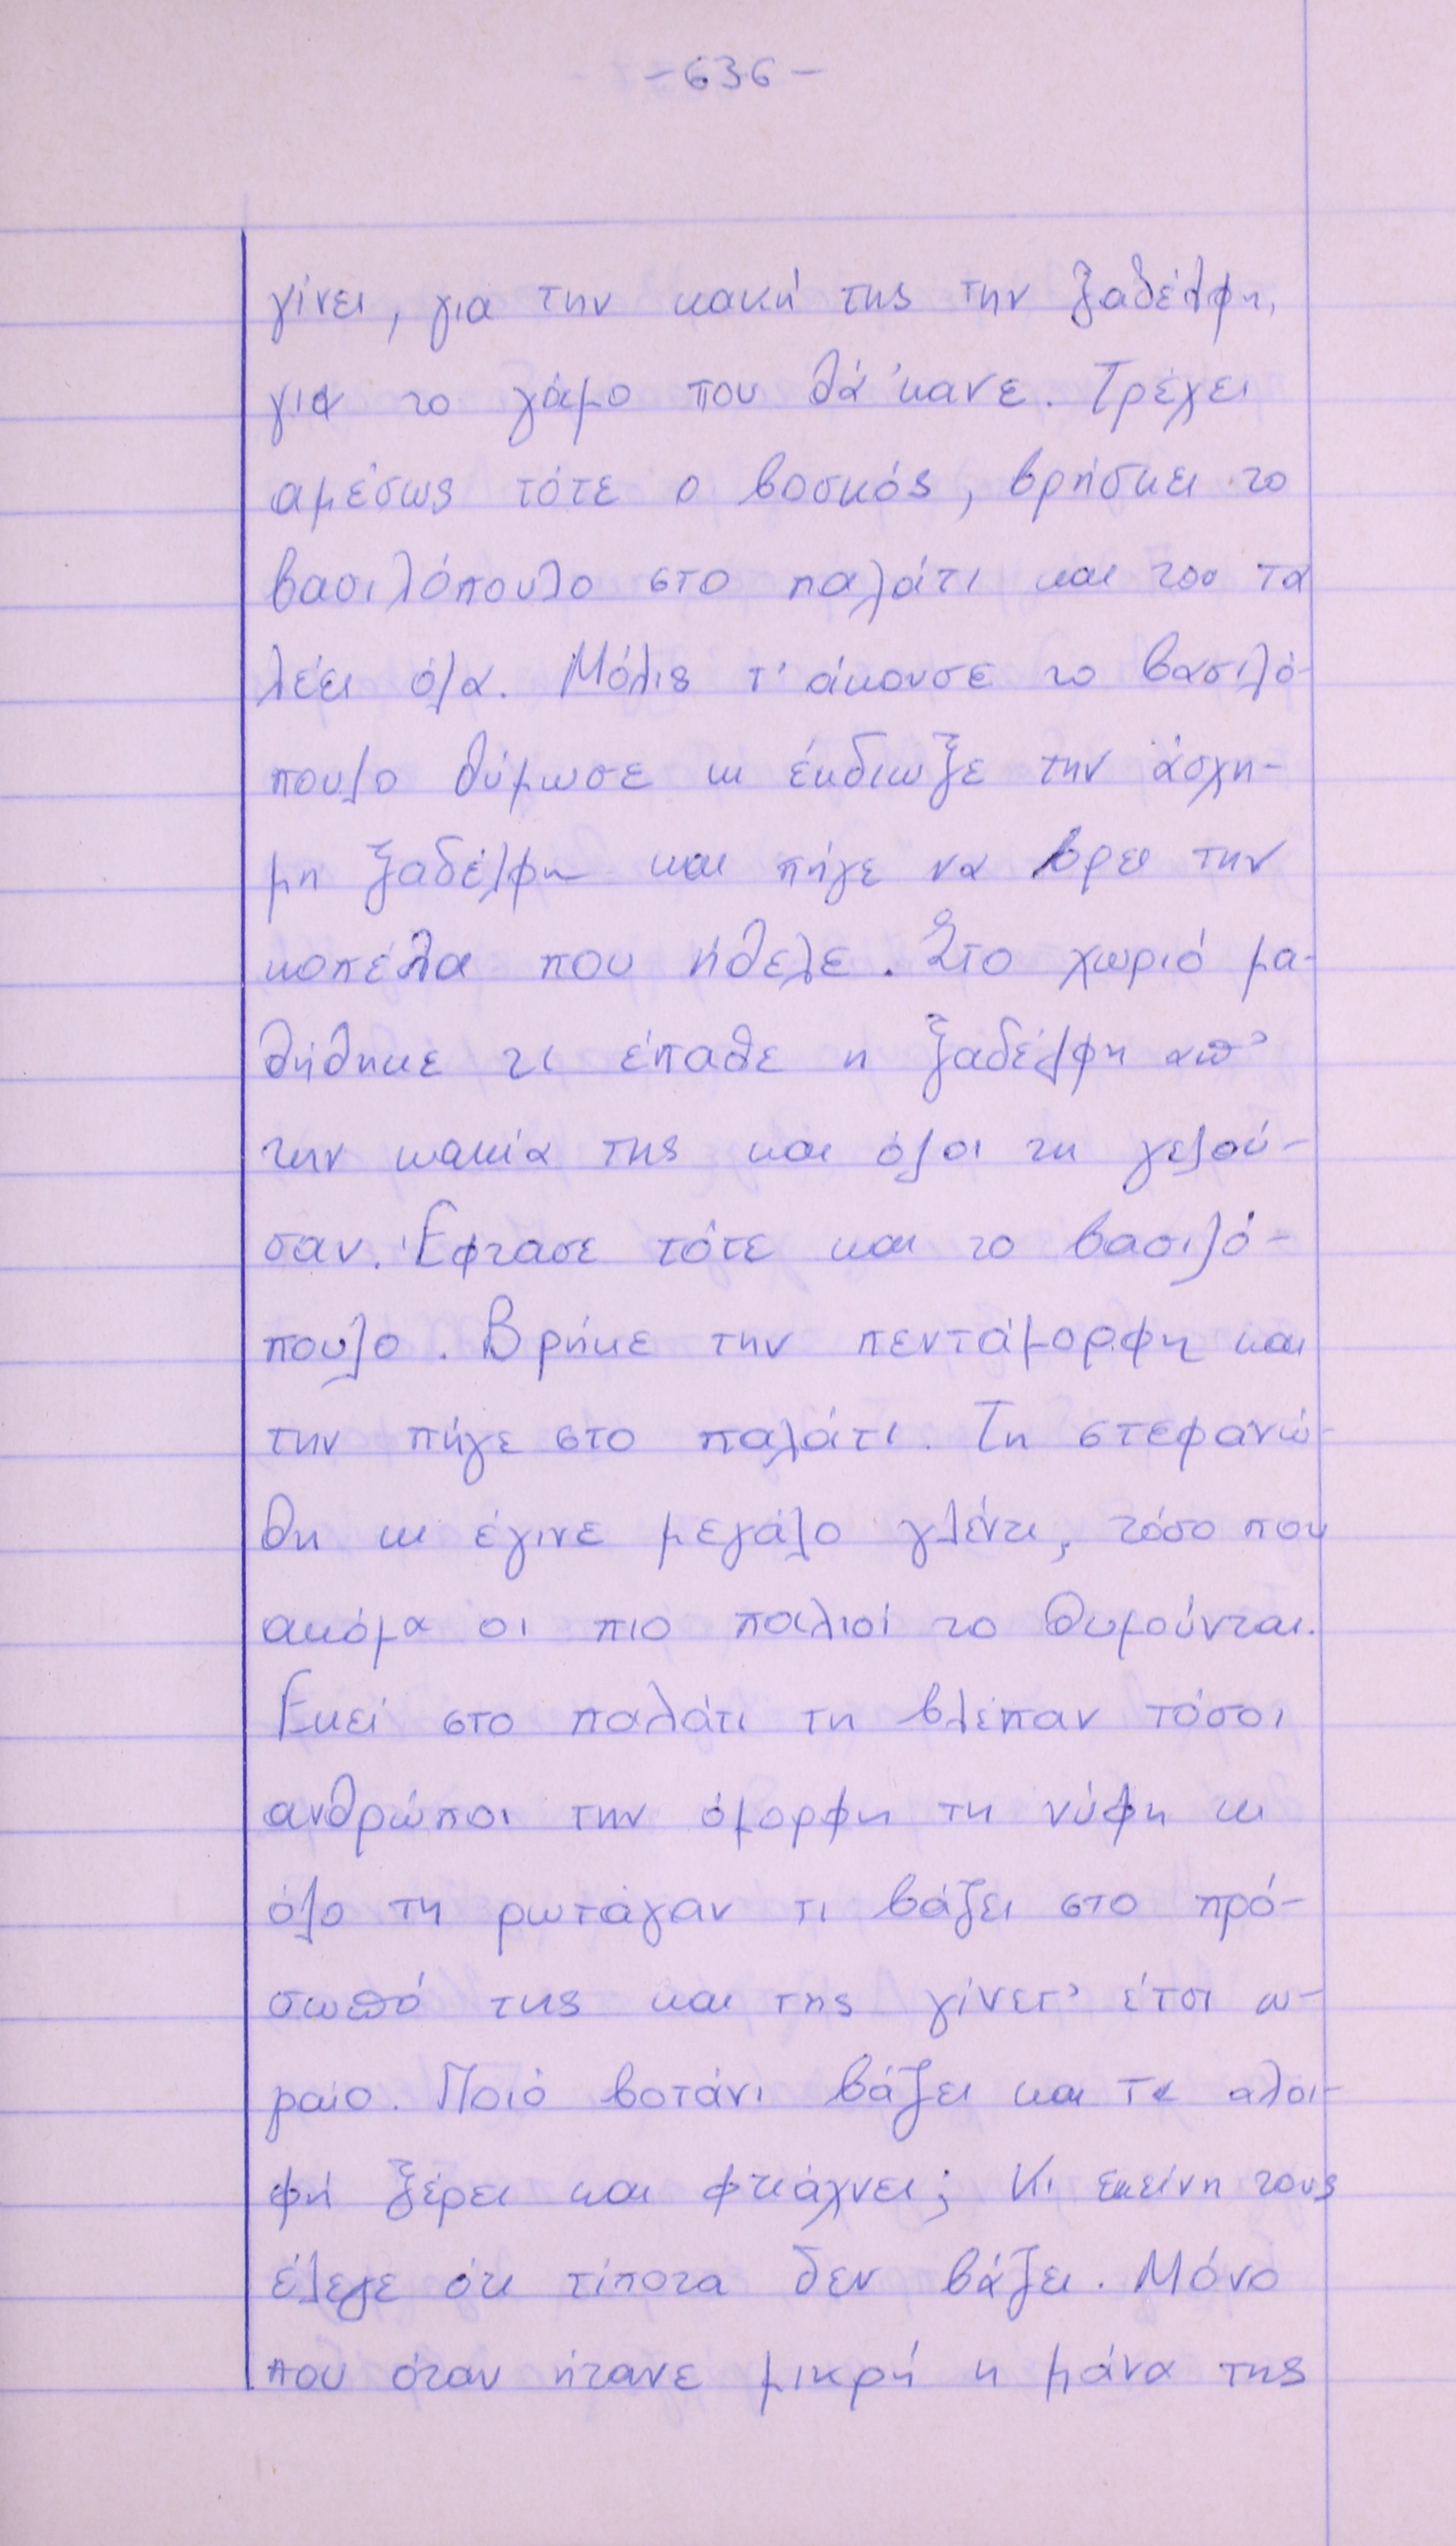 -636-
γίνει, για την κακή της την ξαδέλφη,
για το γάμο που θά 'κανε. Τρέχει
αμέσως τότε ο βοσκός, βρήσκει το
βασιλόπουλο στο παλάτι και του τα
λέει όλα. Μόλις τ' άκουσε το βασιλό-
πουλο θύμωσε κι έκδιωξε την άσχη-
μη ξαδέλφη και πήγε να βρει την
κοπέλα που ήθελε. Στο χωριό μα-
θήθηκε τι έπαθε η ξαδέλφη απ'
την κακία της και όλοι τη γελού-
σαν. Έφτασε τότε και το βασιλό-
πουλο. Βρήκε την πεντάμορφη και
την πήγε στο παλάτι. Τη στεφανώ-
θη κι έγινε μεγάλο γλέντι, τόσο που
ακόμα οι πιο παλιοί το θυμούνται.
Εκεί στο παλάτι τη βλέπαν τόσοι
ανθρώποι την όμορφη τη νύφη κι
όλο τη ρωτάγαν τι βάζει στο πρό-
σωπό της και της γίνετ' έτσι ω-
ραίο. Ποιό βοτάνι βάζει και τι αλοι-
φή ξέρει και φτιάχνει; Κι εκείνη τους
έλεγε ότι τίποτα δεν βάζει. Μόνο
που όταν ήτανε μικρή η μάνα της